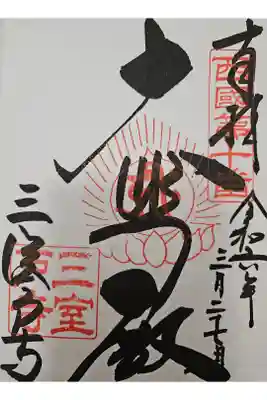 奉拝
西國第十番
令和六年
三月二十日
大悲殿
三室戸寺
三室戸寺